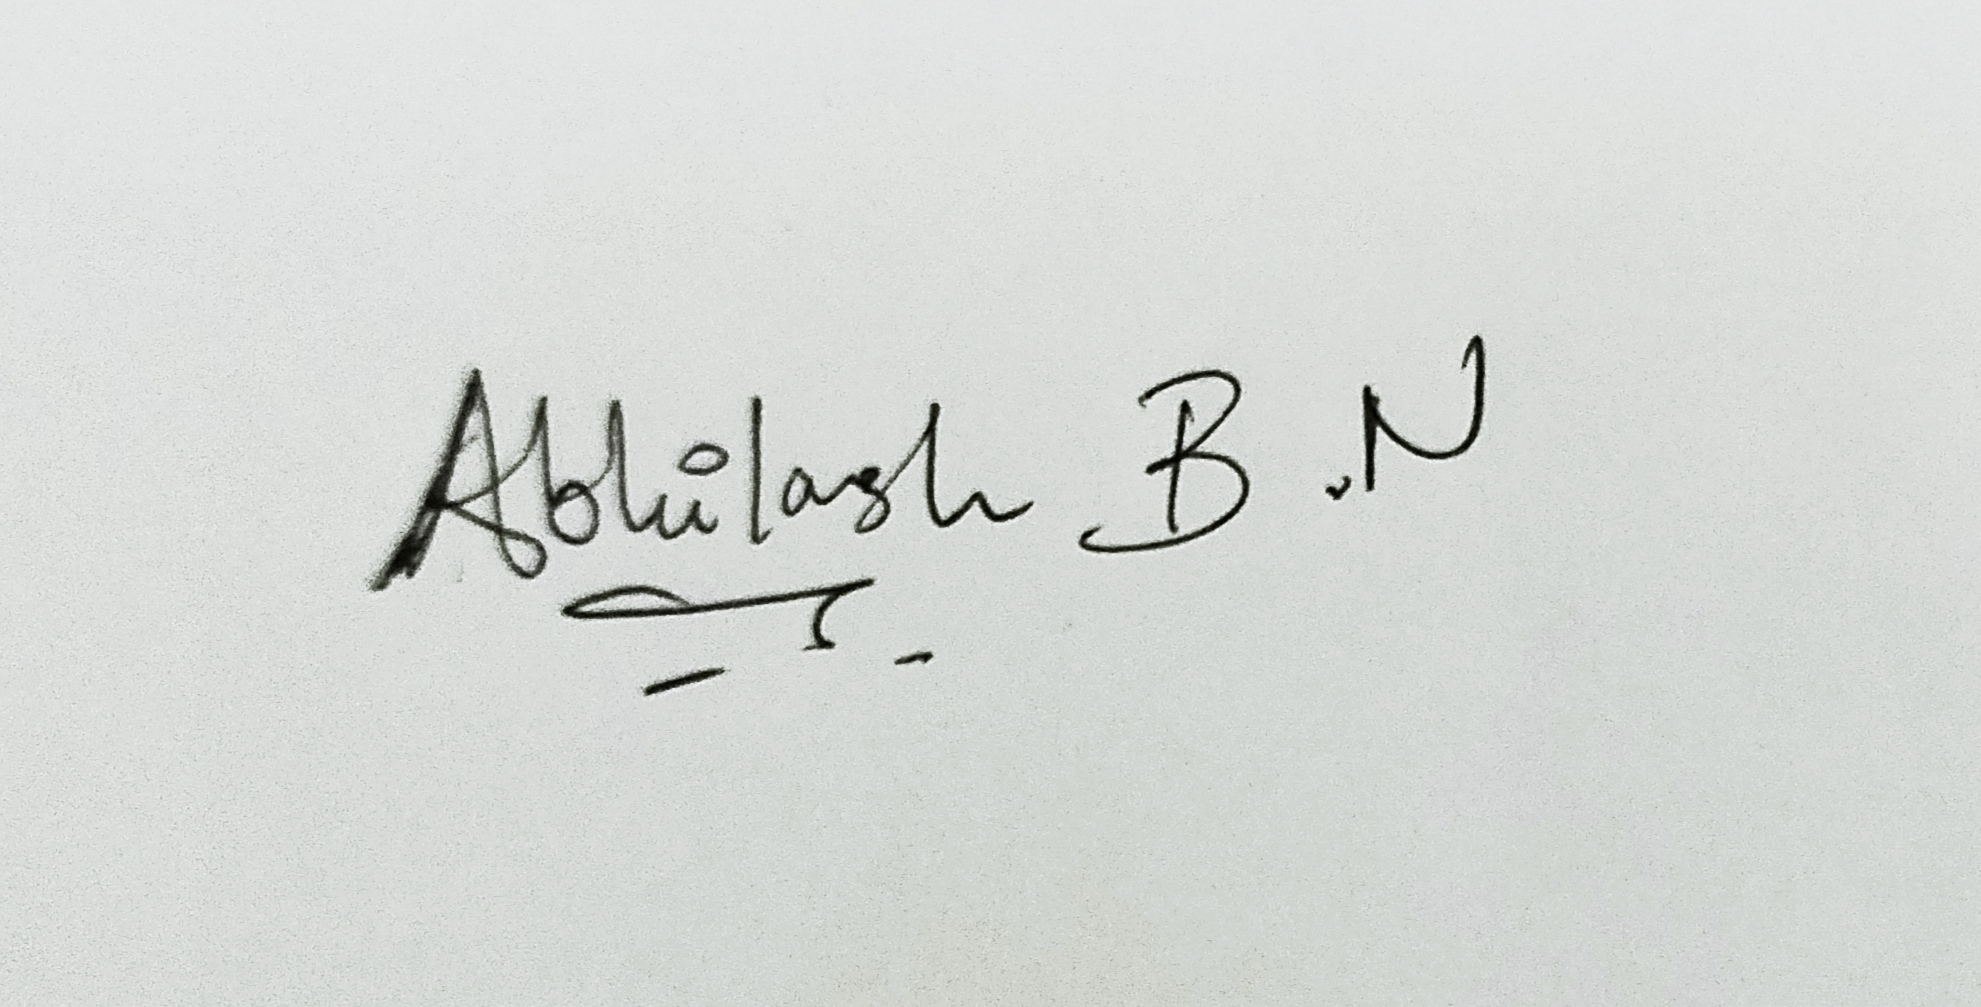 Abhilash B.N